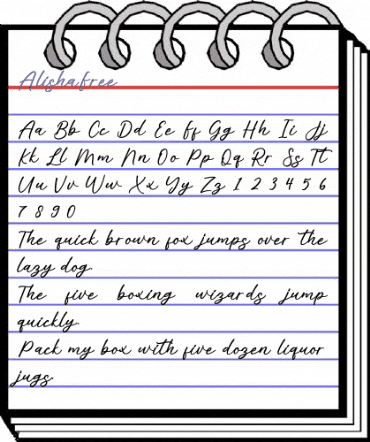 Alishafree
Aa Bb Cc Dd Ee Ff Gg Hh Ii Jj
Kk Ll Mm Nn Oo Pp Qq Rr Ss Tt
Uu Vv Ww Xx Yy Zz 1 2 3 4 5 6
7 8 9 0
The quick brown fox jumps over the
lazy dog.
The five boxing wizards jump
quickly.
Pack my box with five dozen liquor
jugs.